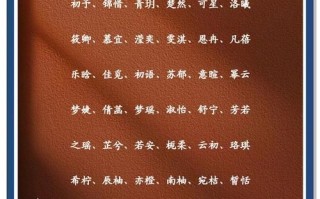 初予、锦惜、青玥、楚然、可星、洛曦
筱卿、慕宜、滢奕、雯淇、恩冉、凡蓓
乐晗、佳觅、初语、苏郁、意暄、幂云
梦婕、倩菡、梦瑶、淑怡、舒宁、芳若
之瑶、芷兮、若安、栀柔、云初、珞琪
希柠、辰柚、亦橙、南柚、宛桔、皙恬